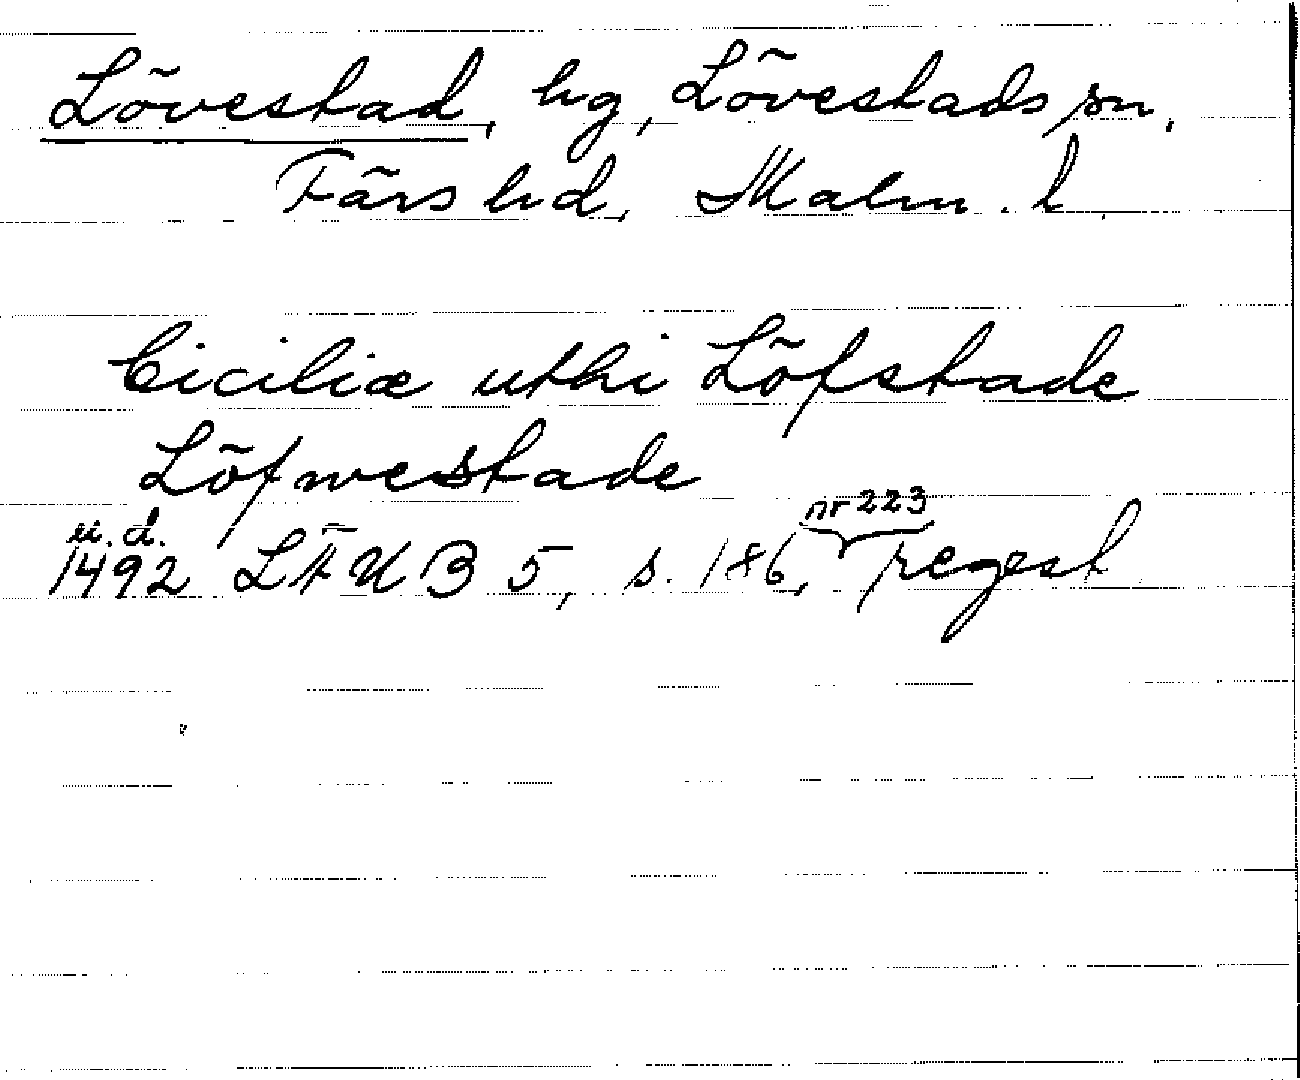 Lövestad, by, Lövestads sn,
Färs hd, Malm. l.
Ciciliæ uthi Löfstade
Löfwestade
u.d. nr 223
1492 LÄUB 5, s. 186, regest